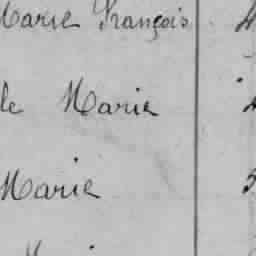 Marie François
le Marie
Marie